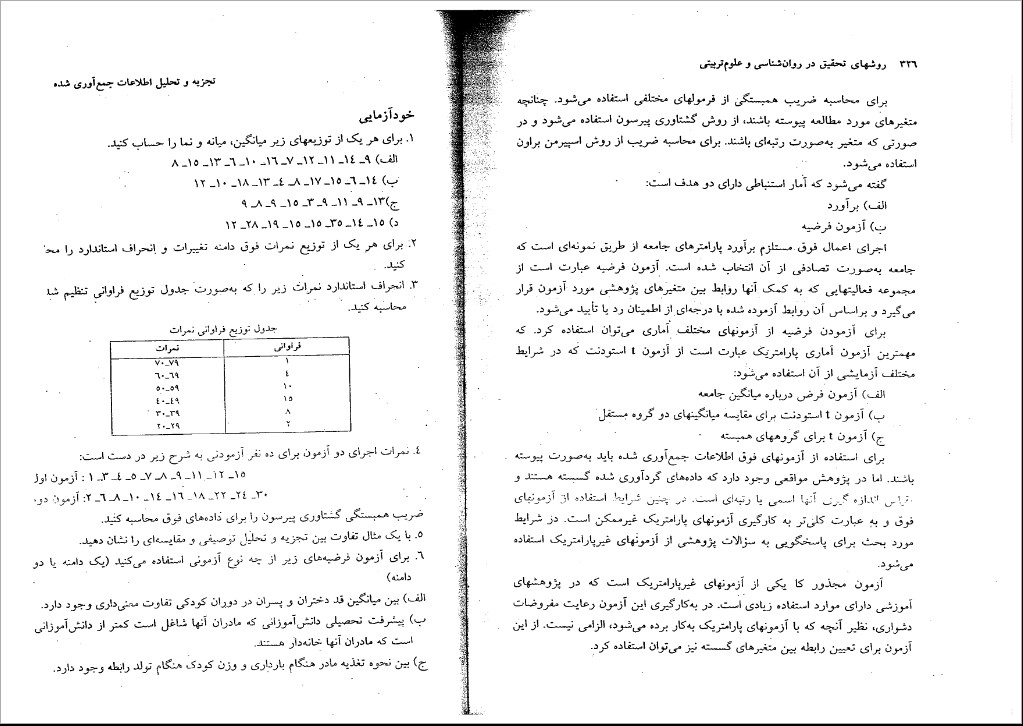 ۳۲٦ روشهای تحقیق در روان‌شناسی و علوم‌تربیتی
برای محاسبه ضریب همبستگی از فرمولهای مختلفی استفاده می‌شود. چنانچه
متغیرهای مورد مطالعه پیوسته باشند، از روش گشتاوری پیرسون استفاده می‌شود و در
صورتی که متغیر به‌صورت رتبه‌ای باشند. برای محاسبه ضریب از روش اسپیرمن براون
استفاده می‌شود.
گفته می‌شود که آمار استنباطی دارای دو هدف است:
الف) برآورد
ب) آزمون فرضیه
اجرای اعمال فوق مستلزم برآورد پارامترهای جامعه از طریق نمونه‌ای است که
جامعه به‌صورت تصادفی از آن انتخاب شده است. آزمون فرضیه عبارت است از
مجموعه فعالیتهایی که به کمک آنها روابط بین متغیرهای پژوهشی مورد آزمون قرار
می‌گیرد و براساس آن روابط آزموده شده با درجه‌ای از اطمینان رد یا تأیید می‌شود.
برای آزمودن فرضیه از آزمونهای مختلف آماری می‌توان استفاده کرد. که
مهمترین آزمون آماری پارامتریک عبارت است از آزمون t استودنت که در شرایط
مختلف آزمایشی از آن استفاده می‌شود:
الف) آزمون فرض درباره میانگین جامعه
ب) آزمون t استودنت برای مقایسه میانگینهای دو گروه مستقل
ج) آزمون t برای گروههای همبسته
برای استفاده از آزمونهای فوق اطلاعات جمع‌آوری شده باید به‌صورت پیوسته
باشند. اما در پژوهش مواقعی وجود دارد که داده‌های گردآوری شده گسسته هستند و
مقیاس اندازه گیری آنها اسمی یا رتبه‌ای است. در چنین شرایط استفاده از آزمونهای
فوق و به عبارت کلی‌تر به کارگیری آزمونهای پارامتریک غیرممکن است. در شرایط
مورد بحث برای پاسخگویی به سؤالات پژوهشی از آزمونهای غیرپارامتریک استفاده
می‌شود.
آزمون مجذور کا یکی از آزمونهای غیرپارامتریک است که در پژوهشهای
آموزشی دارای موارد استفاده زیادی است. در به‌کارگیری این آزمون رعایت مفروضات
دشواری، نظیر آنچه که با آزمونهای پارامتریک به‌کار برده می‌شود، الزامی نیست. از این
آزمون برای تعیین رابطه بین متغیرهای گسسته نیز می‌توان استفاده کرد.
تجزیه و تحلیل اطلاعات جمع‌آوری شده
خودآزمایی
۱. برای هر یک از توزیعهای زیر میانگین، میانه و نما را حساب کنید.
الف) ۹ـ ۱٤ـ ۱۱ـ ۱۲ـ ۷ـ ۱٦ـ ۱۰ـ ٦ـ ۱۳ـ ۱۵ـ ۸
ب) ۱٤ـ ٦ـ ۱۵ـ ۱۷ـ ۸ـ ٤ـ ۱۳ـ ۱۸ـ ۱۰ـ ۱۲
ج)۱۳ـ ۹ـ ۱۱ـ ۹ـ ۳ـ ۱۵ـ ۹ـ ۸ـ ۹
د) ۱۵ـ ۱٤ـ ۳۵ـ ۱۵ـ ۱۵ـ ۱۹ـ ۲۸ـ ۱۲
۲. برای هر یک از توزیع نمرات فوق دامنه تغییرات و انحراف استاندارد را محـ
کنید.
۳. انحراف استاندارد نمرات زیر را که به‌صورت جدول توزیع فراوانی تنظیم شد
محاسبه کنید.
جدول توزیع فراوانی نمرات
فراوانی نمرات
۱ ۷۹ـ۷۰
٤ ٦۹ـ٦۰
۱۰ ۵۹ـ۵۰
۱۵ ٤۹ـ٤۰
۸ ۳۹ـ۳۰
۲ ۲۹ـ۲۰
٤. نمرات اجرای دو آزمون برای ده نفر آزمودنی به شرح زیر در دست است:
۱۵ـ ۱۲ـ ۱۱ـ ۹ـ ۸ـ ۷ـ ۵ـ ٤ـ ۳ـ ۱ : آزمون اول
۳۰ـ ۲٤ـ ۲۲ـ ۱۸ـ ۱٦ـ ۱٤ـ ۱۰ـ ۸ـ ٦ـ ۲: آزمون دوم
ضریب همبستگی گشتاوری پیرسون را برای داده‌های فوق محاسبه کنید.
۵. با یک مثال تفاوت بین تجزیه و تحلیل توصیفی و مقایسه‌ای را نشان دهید.
٦. برای آزمون فرضیه‌های زیر از چه نوع آزمونی استفاده می‌کنید (یک دامنه یا دو
دامنه)
الف) بین میانگین قد دختران و پسران در دوران کودکی تفاوت معنی‌داری وجود دارد.
ب) پیشرفت تحصیلی دانش‌آموزانی که مادران آنها شاغل است کمتر از دانش‌آموزانی
است که مادران آنها خانه‌دار هستند.
ج) بین نحوه تغذیه مادر هنگام بارداری و وزن کودک هنگام تولد رابطه وجود دارد.